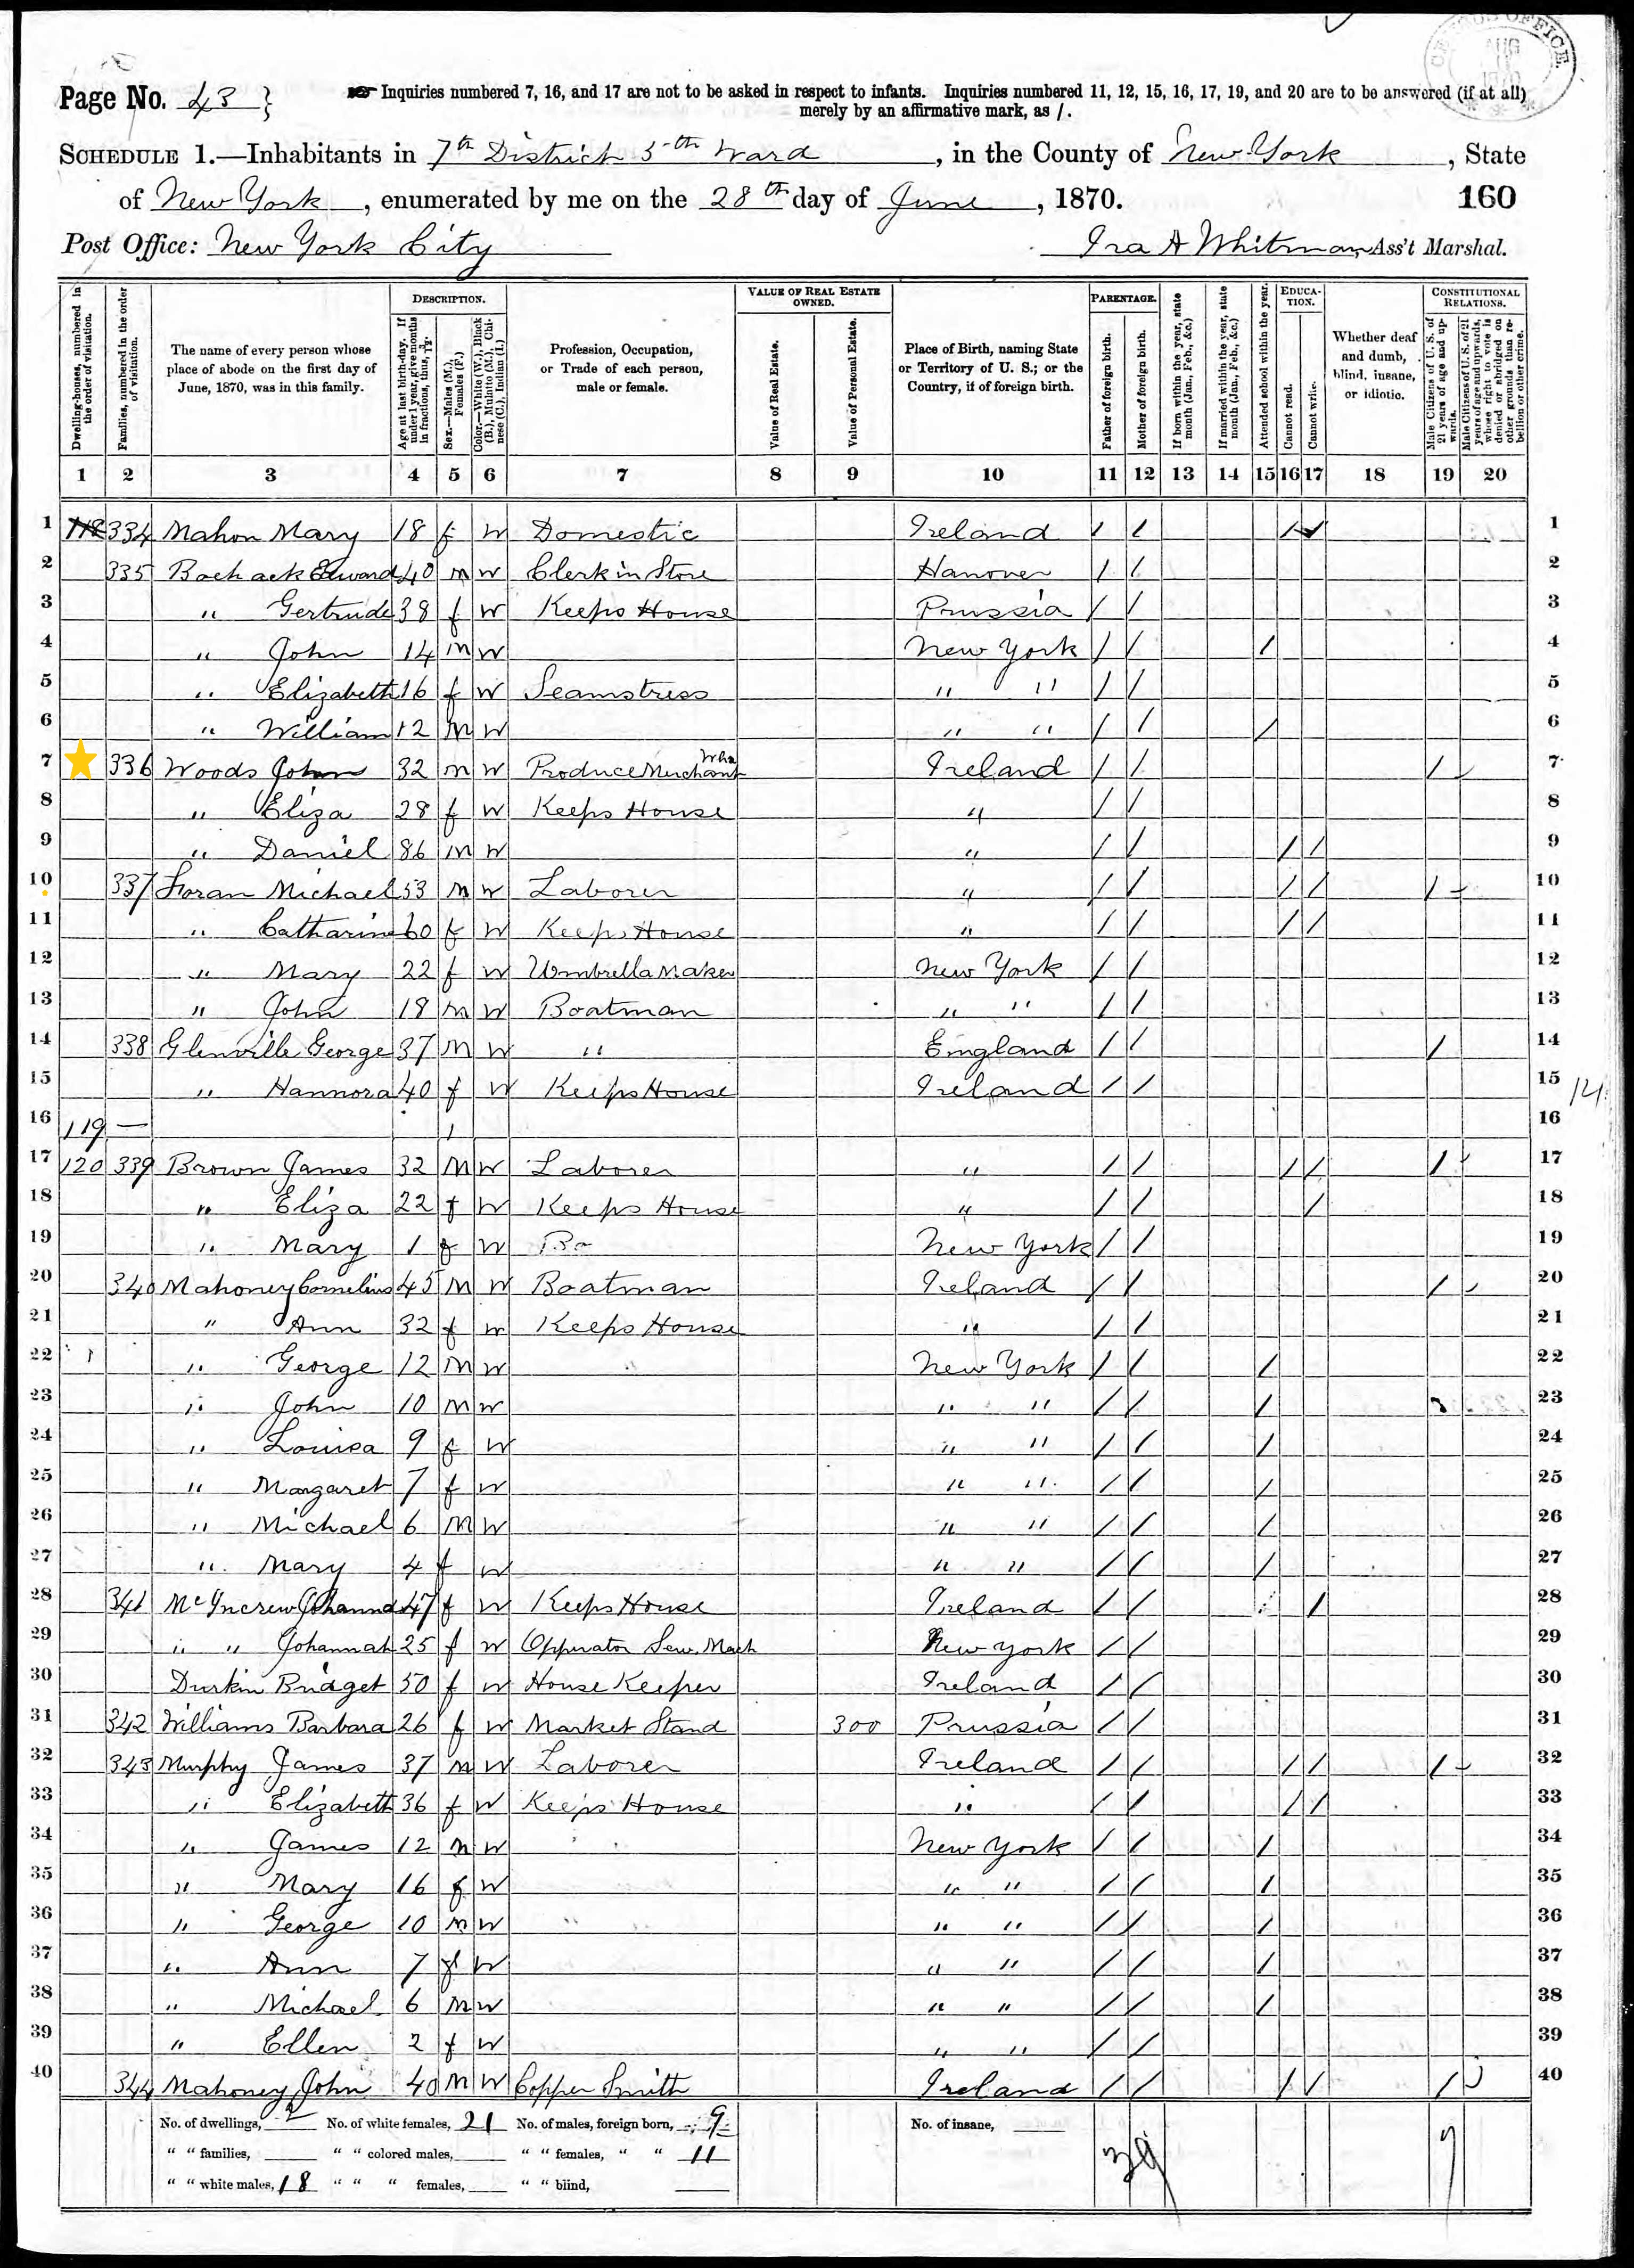 Page No. 43 }
Inquiries numbered 7, 16, and 17 are not to be asked in respect to infants. Inquiries numbered 11, 12, 15, 16, 17, 19, and 20 are to be answered (if at all)
merely by an affirmative mark, as /.
SCHEDULE 1.—Inhabitants in 7th District 5th Ward, in the County of New York, State
of New York, enumerated by me on the 28th day of June, 1870. 160
Post Office: New York City Ira A Whitman, Ass't Marshal.
Dwelling-houses, numbered in the order of visitation.
Families, numbered in the order of visitation.
The name of every person whose place of abode on the first day of June, 1870, was in this family.
DESCRIPTION.
Age at last birth-day. If under 1 year, give months in fractions, thus, 3/12.
Sex.—Males (M.), Females (F.)
Color.—White (W.), Black (B.), Mulatto (M.), Chinese (C.), Indian (I.)
Profession, Occupation, or Trade of each person, male or female.
VALUE OF REAL ESTATE OWNED.
Value of Real Estate.
Value of Personal Estate.
Place of Birth, naming State or Territory of U. S.; or the Country, if of foreign birth.
PARENTAGE.
Father of foreign birth.
Mother of foreign birth.
If born within the year, state month (Jan., Feb., &c.)
If married within the year, state month (Jan., Feb., &c.)
Attended school within the year.
EDUCATION.
Cannot read.
Cannot write.
Whether deaf and dumb, blind, insane, or idiotic.
CONSTITUTIONAL RELATIONS.
Male Citizens of U. S. of 21 years of age and upwards.
Male Citizens of U. S. of 21 years of age and upwards, whose right to vote is denied or abridged on other grounds than rebellion or other crime.
1 2 3 4 5 6 7 8 9 10 11 12 13 14 15 16 17 18 19 20
1 118 334 Mahon Mary 18 f W Domestic Ireland / / / / 1
2 335 Edward 40 m W Clerk in Store Hanover / / 2
3 " Gertrude 38 f W Keeps House Prussia / / 3
4 " John 14 m W New York / / / 4
5 " Elizabeth 16 f W Seamstress " " / / 5
6 " William 12 m W " " / / / 6
7 336 Woods John 32 m W Produce Merchant Ireland / / / 7
8 " Eliza 28 f W Keeps House " / / 8
9 " Daniel 86 m W " / / / / 9
10 337 Foran Michael 53 m W Laborer " / / / / / 10
11 " Catharine 60 f W Keeps House " / / / / 11
12 " Mary 22 f W Umbrella Maker New York / / 12
13 " John 18 m W Boatman " " / / 13
14 338 Glenville George 37 M W " England / / / 14
15 " Hannora 40 f W Keeps House Ireland / / 15 14
16 119 — 16
17 120 339 Brown James 32 M W Laborer " / / / / / 17
18 " Eliza 22 f W Keeps House " / / / 18
19 " Mary 1 f W New York / / 19
20 340 Mahoney Cornelius 45 M W Boatman Ireland / / / 20
21 " Ann 32 f W Keeps House " / / 21
22 " George 12 M W New York / / / 22
23 " John 10 M W " " / / / 23
24 " Louisa 9 f W " " / / / 24
25 " Margaret 7 f W " " / / / 25
26 " Michael 6 M W " " / / / 26
27 " Mary 4 f W " " / / / 27
28 341 Johanna 47 f W Keeps House Ireland / / / 28
29 " " Johannah 25 f W Opperator Sew. Mach New York / / 29
30 Durkin Bridget 50 f W House Keeper Ireland / / 30
31 342 Williams Barbara 26 f W Market Stand 300 Prussia / / 31
32 343 Murphy James 37 m W Laborer Ireland / / / / / 32
33 " Elizabeth 36 f W Keeps House " / / / / 33
34 " James 12 m W New York / / / 34
35 " Mary 16 f W " " / / / 35
36 " George 10 m W " " / / / 36
37 " Ann 7 f W " " / / / 37
38 " Michael 6 M W " " / / / 38
39 " Ellen 2 f W " " / / 39
40 344 Mahoney John 40 M W Copper Smith Ireland / / / / / 40
No. of dwellings, 2 No. of white females, 21 No. of males, foreign born, 9 No. of insane,
" " families, " " colored males, " " females, " " 11 39 9
" " white males, 18 " " " females, " " blind,